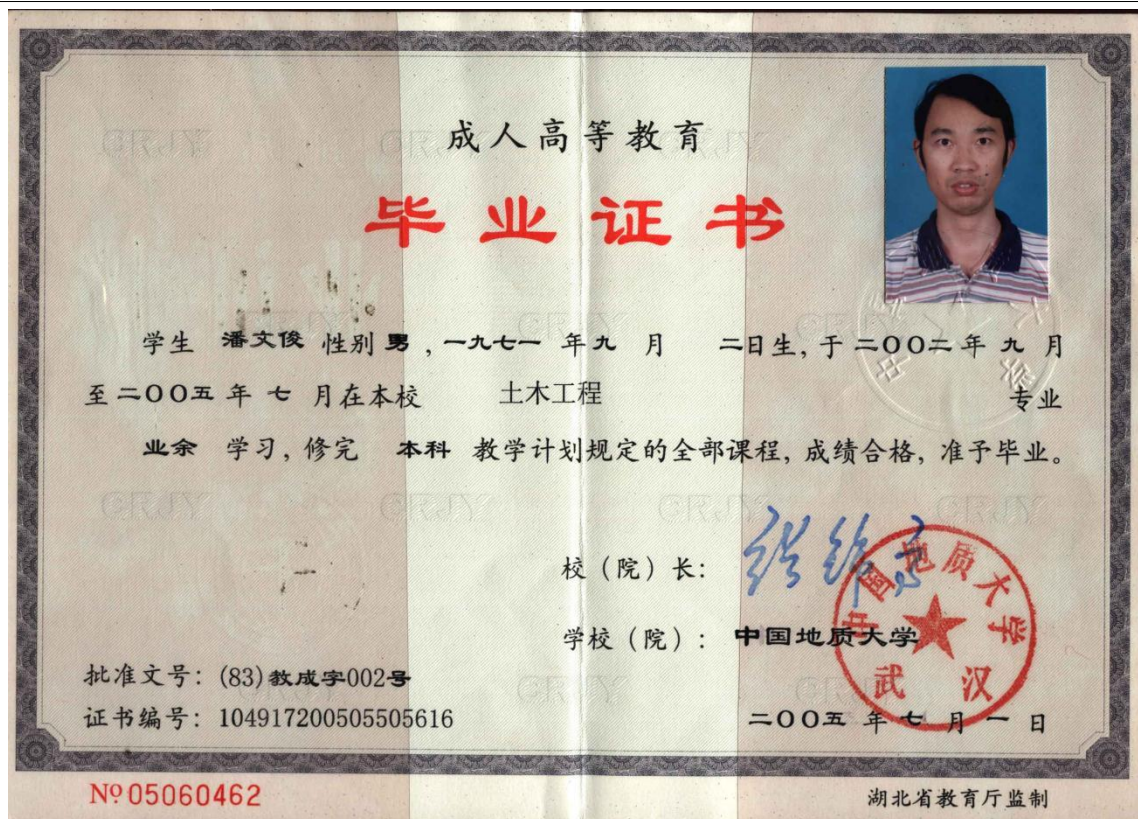 成人高等教育
毕业证书
学生 潘文俊 性别 男，一九七一 年 九 月 二日生，于 二〇〇二 年 九 月
至 二〇〇五 年 七 月在本校 土木工程 专业
业余 学习，修完 本科 教学计划规定的全部课程，成绩合格，准予毕业。
校（院）长：
学校（院）：中国地质大学
中国地质大学
武汉
批准文号：(83)教成字002号
证书编号：104917200505505616
二〇〇五 年 七 月 一 日
№ 05060462
湖北省教育厅监制
CRJY
CRJY
CRJY
CRJY
CRJY
CRJY
CRJY
CRJY
CRJY